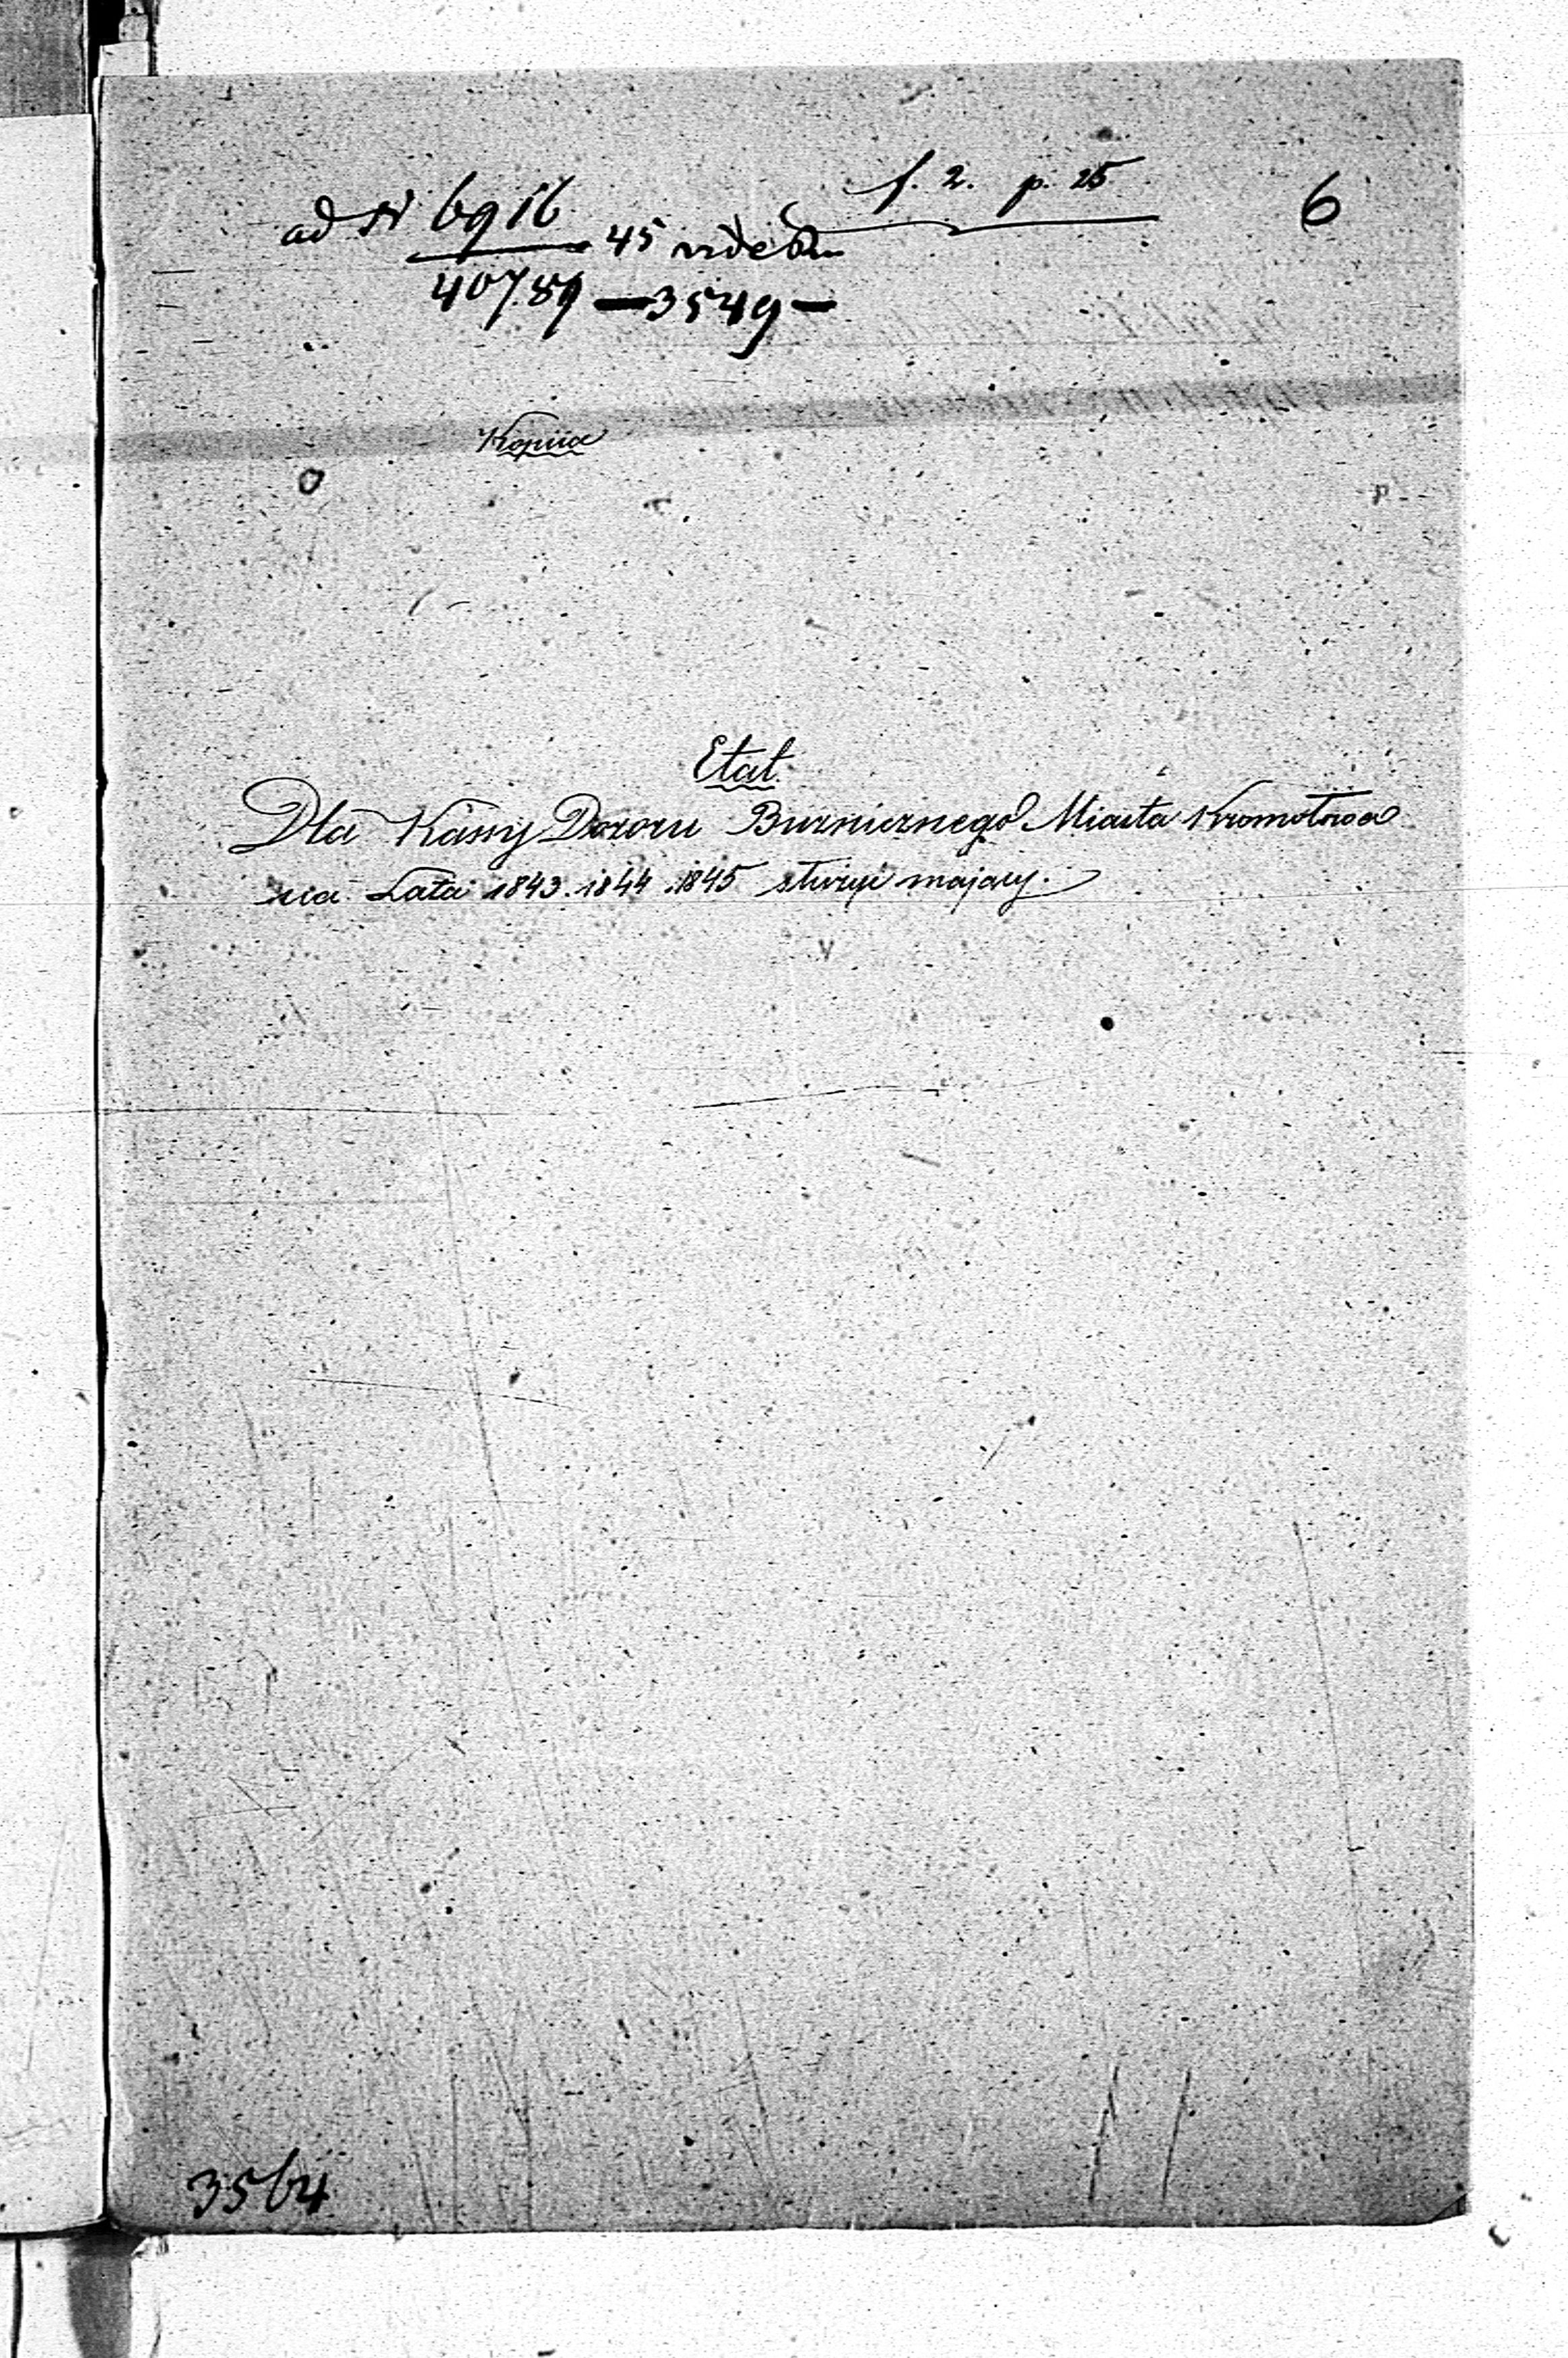 f. 2. p. 25 6
ad N 6916 45
40789 — 3549 —
Kopiia
Etat
Dla Kassy Dozoru Bużniznego Miasta Kromołowa
na Lata 1843. 1844. 1845 służyć mający.
3564